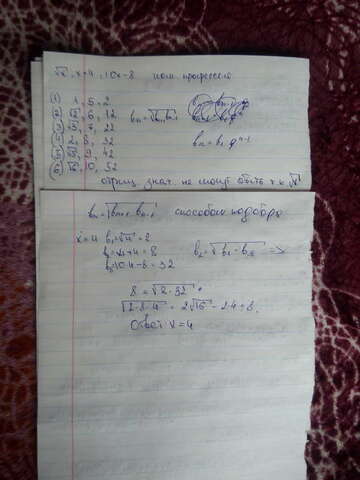 √x, x+4, 10x-8 геом прогрессия
① 1, 5, 2
② √2, 6, 12 bn=√bn-1·bn+1
③ √3, 7, 22
④ 2, 8, 32 bn=b1·q^n-1
⑤ √5, 9, 42
⑥ √6, 10, 52
отриц знач. не могут быть т.к √x
способом подбора
x=4 b1=√4=2
b2=x+4=8
b3=10·4-8=32
8=√2·32
√2·8·4=2√16=2·4=8.
Ответ x=4